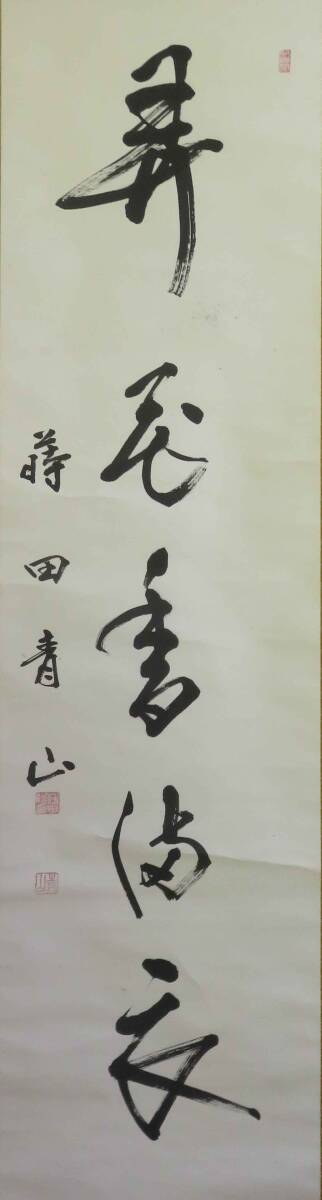 弄花香満衣
蒔田青山